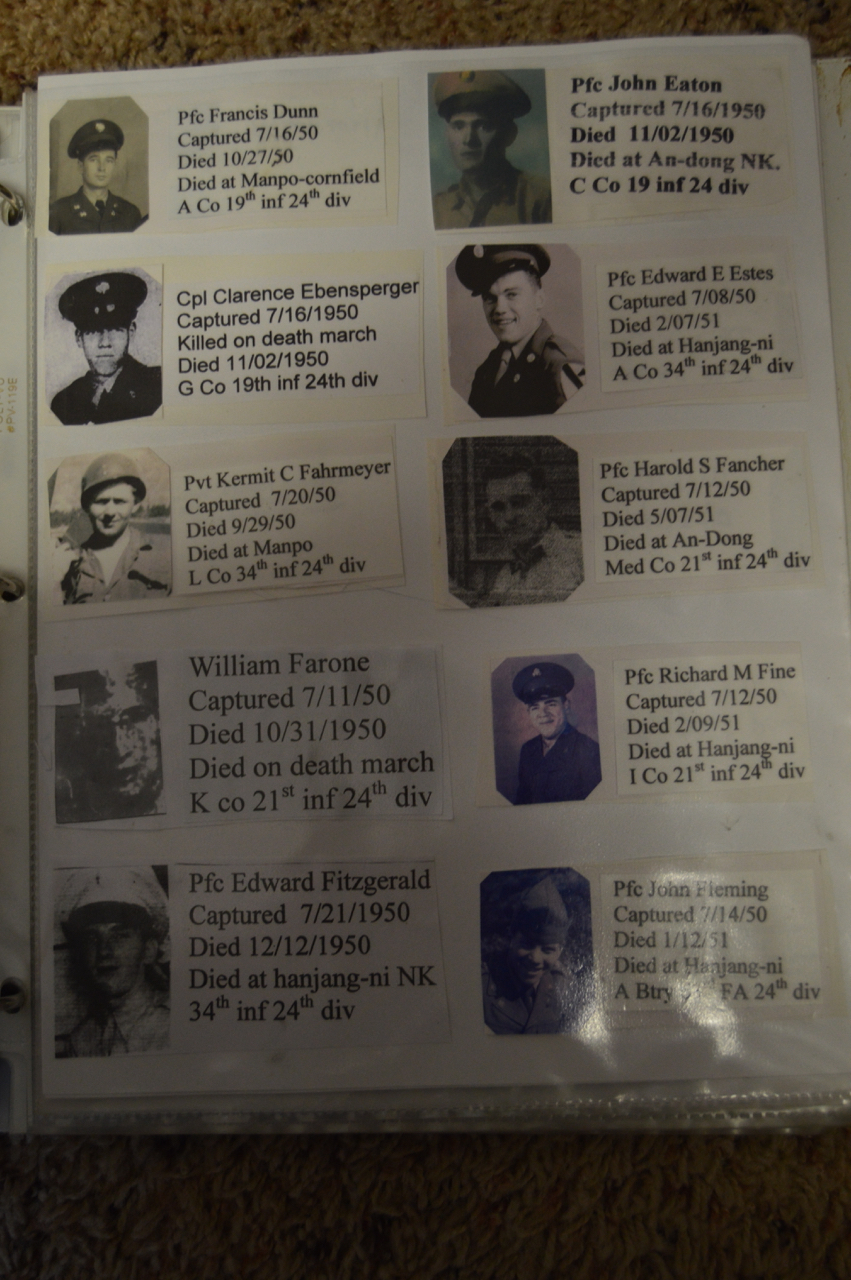 Pfc Francis Dunn
Captured 7/16/50
Died 10/27/50
Died at Manpo-cornfield
A Co 19th inf 24th div
Pfc John Eaton
Captured 7/16/1950
Died 11/02/1950
Died at An-dong NK.
C Co 19 inf 24 div
Cpl Clarence Ebensperger
Captured 7/16/1950
Killed on death march
Died 11/02/1950
G Co 19th inf 24th div
Pfc Edward E Estes
Captured 7/08/50
Died 2/07/51
Died at Hanjang-ni
A Co 34th inf 24th div
Pvt Kermit C Fahrmeyer
Captured 7/20/50
Died 9/29/50
Died at Manpo
L Co 34th inf 24th div
Pfc Harold S Fancher
Captured 7/12/50
Died 5/07/51
Died at An-Dong
Med Co 21st inf 24th div
William Farone
Captured 7/11/50
Died 10/31/1950
Died on death march
K co 21st inf 24th div
Pfc Richard M Fine
Captured 7/12/50
Died 2/09/51
Died at Hanjang-ni
I Co 21st inf 24th div
Pfc Edward Fitzgerald
Captured 7/21/1950
Died 12/12/1950
Died at hanjang-ni NK
34th inf 24th div
Pfc John Fleming
Captured 7/14/50
Died 1/12/51
Died at Hanjang-ni
A Btry FA 24th div